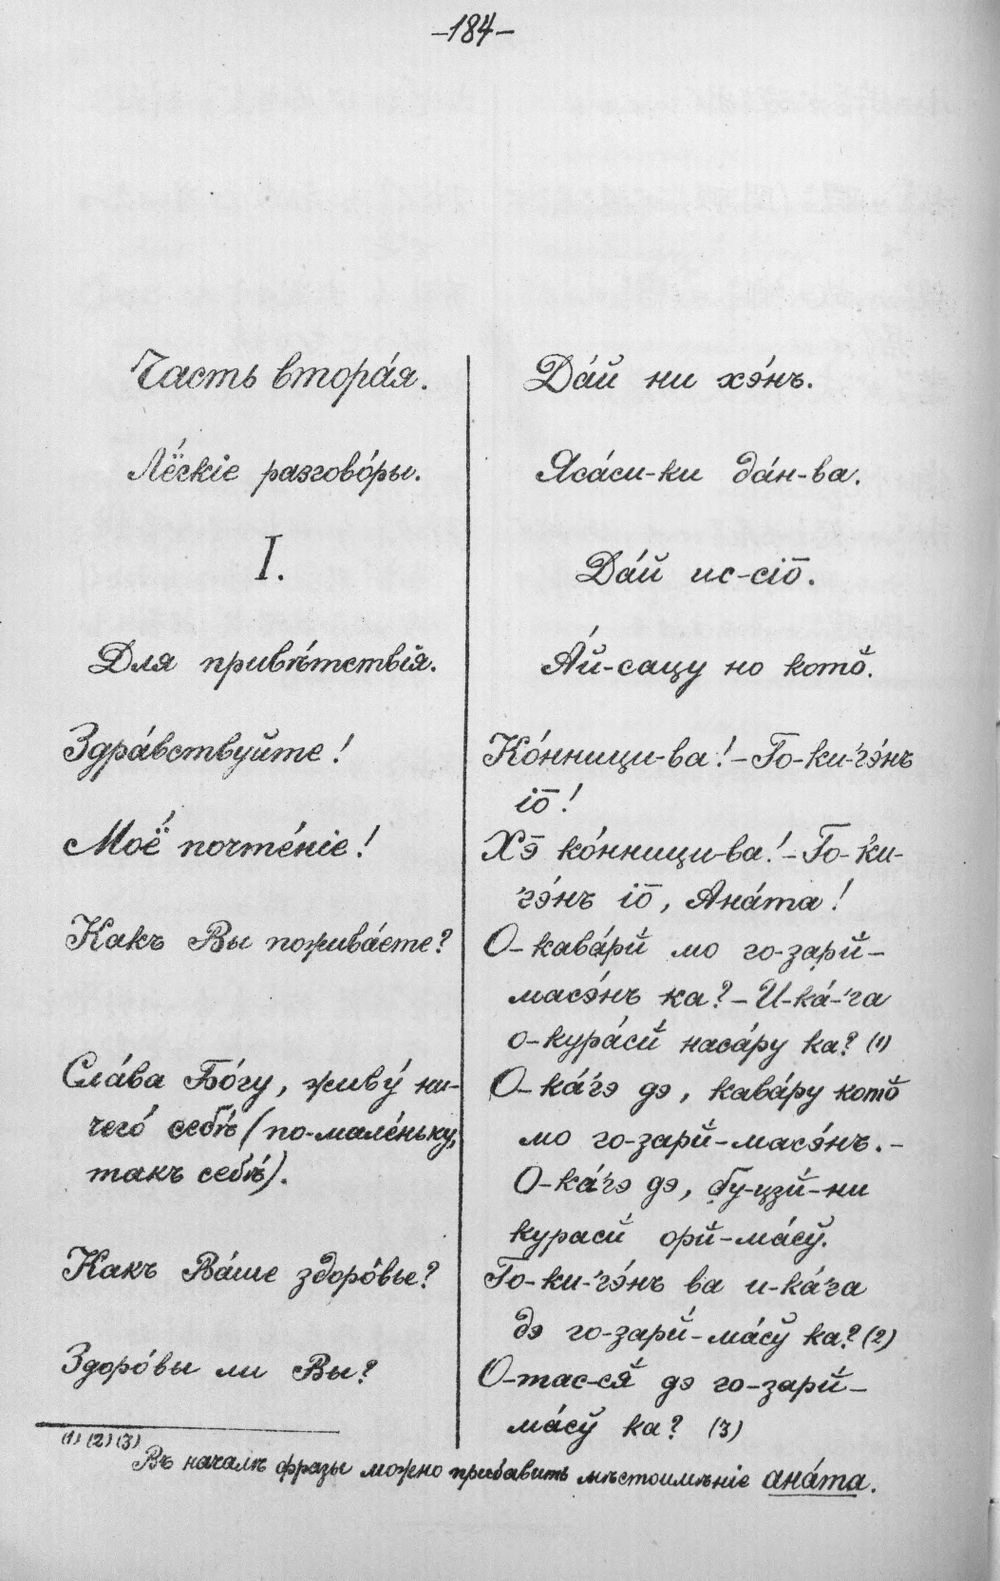 –184–
Часть втора́я.
Лё́скіе разгово́ры.
I.
Для привѣ́тствія.
Здра́вствуйте!
Моё́ почте́ніе!
Какъ Вы пожива́ете?
Сла́ва Бо́гу, живу́ ни-
чего́ себѣ́ (по-мале́ньку,
такъ себѣ́).
Какъ Ва́ше здоро́вье?
Здоро́вы ли Вы?
Да́й ни хэ́нъ.
Яса́си-ки да́н-ва.
Да́й ис-сіо̄.
А́й-сацу но кото̆.
Ко́нници-ва! – Го-ки-'гэ́нъ
іо̄!
Хэ̄ ко́нници-ва! – Го-ки-
'гэ́нъ іо̄, Ана́та!
О-кава́рй мо го-зарй-
масэ́нъ ка? – И-ка́-'га
о-кура́сй наса́ру ка? (1)
О-ка́'гэ дэ, кава́ру кото̆
мо го-зарй-масэ́нъ. –
О-ка́'гэ дэ, бу-цзй-ни
курасй орй-ма́сў.
Го-ки-'гэ́нъ ва и-ка́'га
дэ го-зарй-ма́сў ка? (2)
О-тас-ся̆ дэ го-зарй-
ма́сў ка? (3)
(1) (2) (3) Въ началѣ фразы можно прибавить мѣстоимѣніе ана́та.